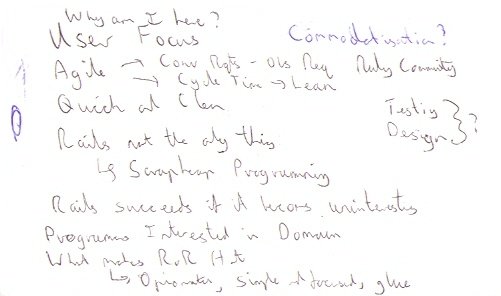 Why am I here?
User Focus
Commoditisation?
Agile → Conv Rqts - Obs Req
Ruby Community
→ Cycle Time → Lean
Quick and Clean
Testing
Design } ?
Rails not the only thing
↳ Scrapheap Programming
Rails succeeds if it becomes uninteresting
Programmers Interested in Domain
What makes RoR Hot
↳ Opinionated, Simple and focused, glue